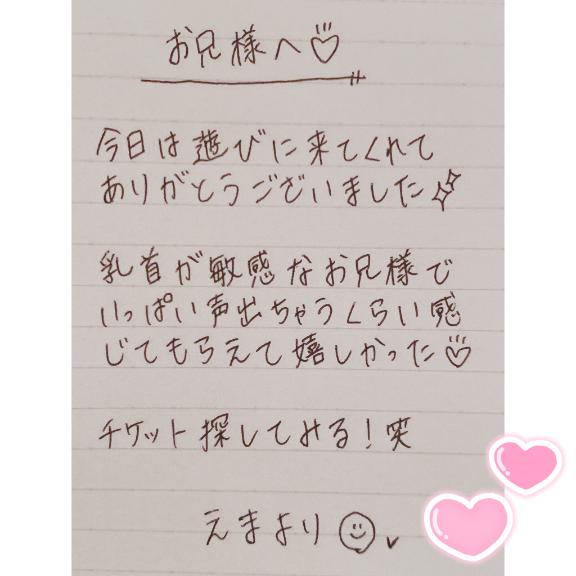 お兄様へ♡
今日は遊びに来てくれて
ありがとうございました✨
乳首が敏感なお兄様で
いっぱい声出ちゃうくらい感
じてもらえて嬉しかった♡
チケット探してみる!笑
えまより☺